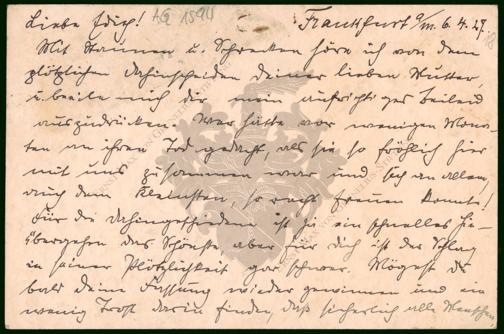 Liebe Edith! AG 1594
Frankfurt a/m. 6.4.27.
Mit Staunen u. Schrecken höre ich von dem
plötzlichen Dahinscheiden deiner lieben Mutter,
u. beeile mich dir mein aufrichtiges Beileid
auszudrücken. Wer hätte vor wenigen Mona-
ten an ihren Tod gedacht, als sie so fröhlich hier
mit uns zusammen war und sich an allem,
auch dem Kleinsten, so recht freuen konnte!
Für die Dahingeschiedene ist ja ein schnelles Hin-
übergehen das Schönste, aber für dich ist der Schlag
in seiner Plötzlichkeit gar schwer. Mögest du
bald deine Fassung wieder gewinnen und ein
wenig Trost darin finden, daß sicherlich alle Menschen